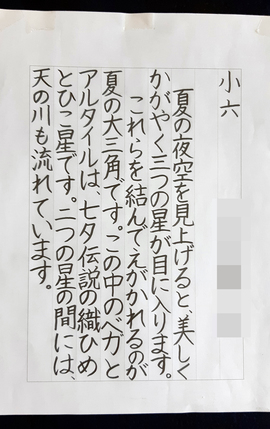 小六
夏の夜空を見上げると、美しく
かがやく三つの星が目に入ります。
これらを結んでえがかれるのが
夏の大三角です。この中のベガと
アルタイルは、七夕伝説の織ひめ
とひこ星です。二つの星の間には、
天の川も流れています。